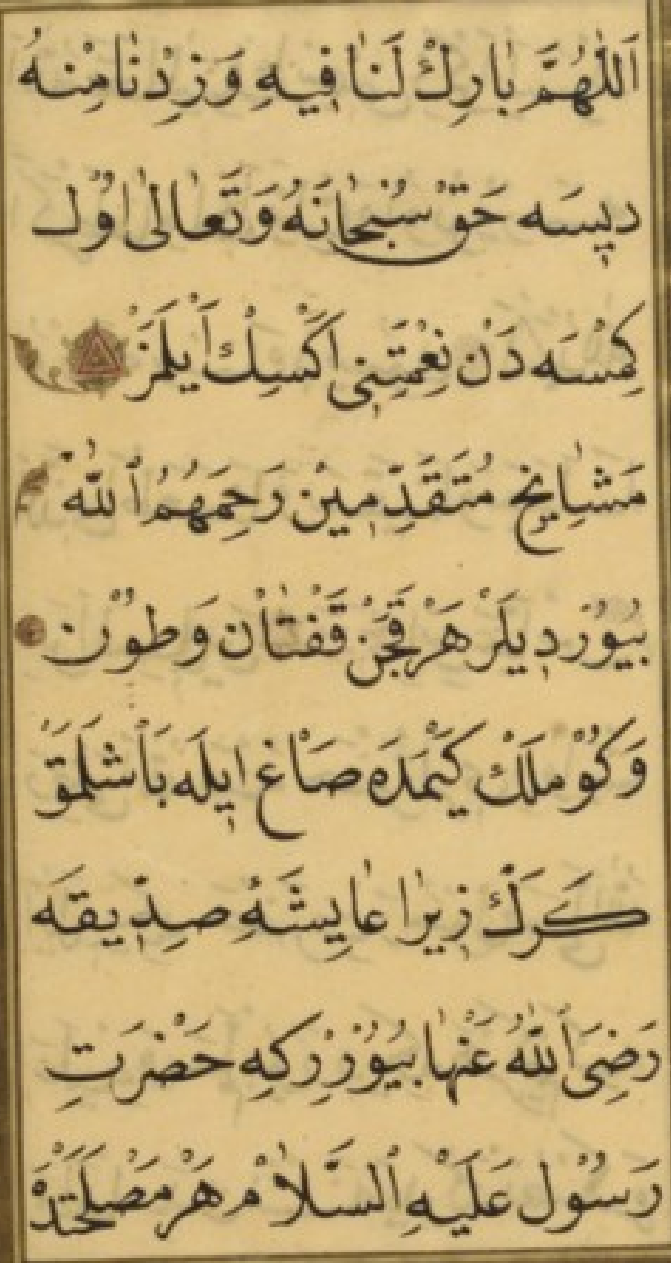 اَللّٰهُمَّ بٰارِكْ لَنٰا فِيهِ وَزِدْنٰا مِنْهُ
دِيسَه حَقْ سُبْحٰانَهُ وَتَعٰالىٰ اوُلْ
كِمْسَه دَنْ نِعْمَتِنِى اَكْسِكْ اَيْلَمَزْ
مَشٰايِخِ مُتَقَدِّمِينْ رَحِمَهُمُ ٱللّٰهْ
بُيُورْدِيلَرْ هَرْ قَچَنْ قَفْتٰانْ وَطُونْ
وَكُوْمْلَكْ كَيْمَدَه صَاْغْ اِيلَه بَاْشْلَمَقْ
كَرَكْ زِيرٰا عٰايِشَۀِ صِدِّيقَه
رَضِىَ ٱللّٰهُ عَنْهٰا بُيُوْرُرْ كِه حَضْرَتِ
رَسُوْلْ عَلَيْهِ ٱلسَّلاٰمْ هَرْ مَصْلَحَتْدَه